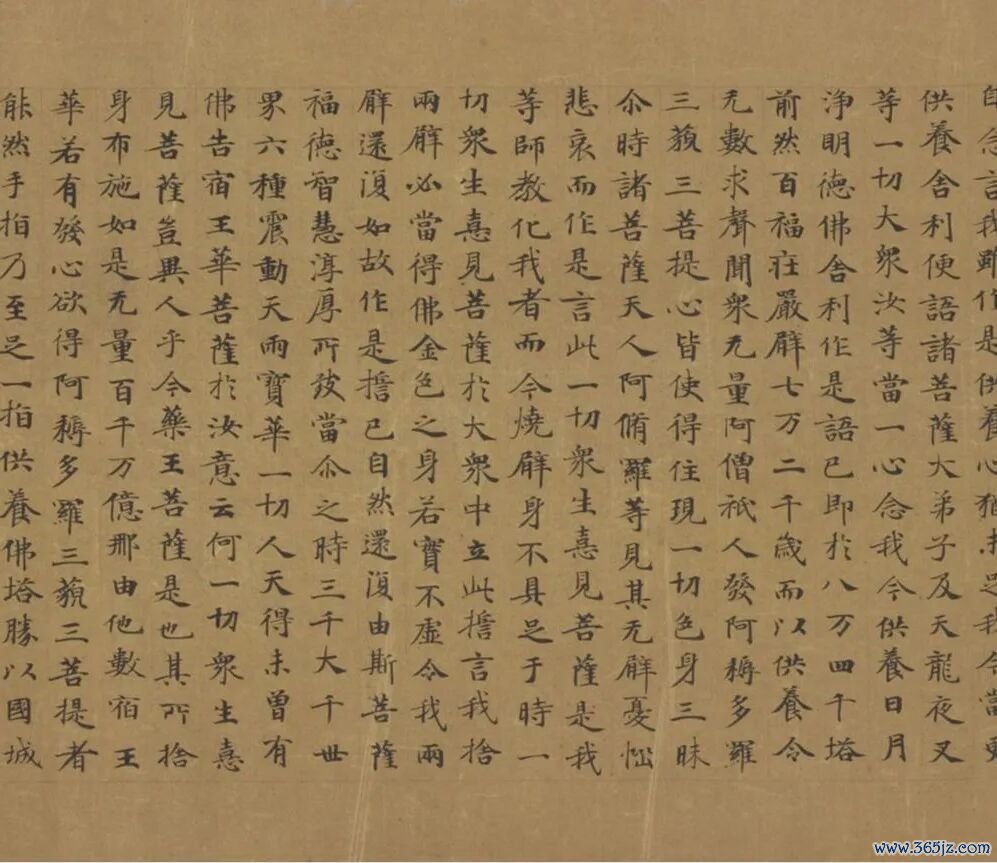 自念言我雖作是供養心猶未足我今當更
供養舍利便語諸菩薩大弟子及天龍夜叉
等一切大衆汝等當一心念我今供養日月
淨明德佛舍利作是語已即於八万四千塔
前然百福庄嚴臂七万二千歲而以供養令
无數求聲聞衆无量阿僧祇人發阿耨多羅
三藐三菩提心皆使得住現一切色身三昧
尒時諸菩薩天人阿脩羅等見其无臂憂惱
悲哀而作是言此一切衆生憙見菩薩是我
等師教化我者而今燒臂身不具足于時一
切衆生憙見菩薩於大衆中立此誓言我捨
兩臂必當得佛金色之身若實不虛令我兩
臂還復如故作是誓已自然還復由斯菩薩
福德智慧淳厚所致當尒之時三千大千世
界六種震動天雨寶華一切人天得未曾有
佛告宿王華菩薩於汝意云何一切衆生憙
見菩薩豈異人乎今藥王菩薩是也其所捨
身布施如是无量百千万億那由他數宿王
華若有發心欲得阿耨多羅三藐三菩提者
能然手指乃至足一指供養佛塔勝以國城
www.365jz.com